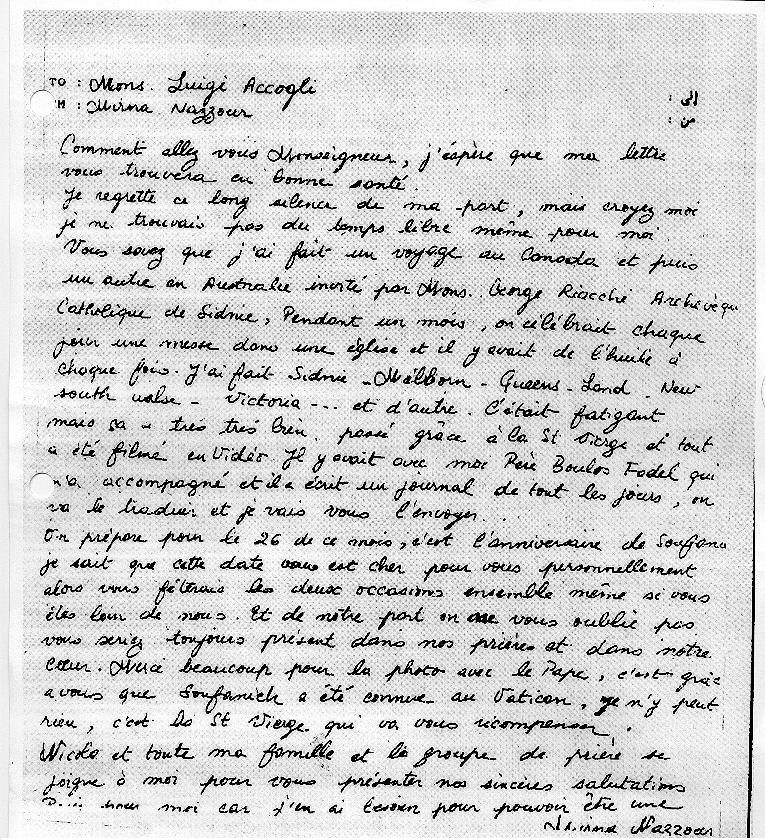 TO : Mons. Luigi Accogli
إلى :
M : Mirna Nazzour
من :
Comment allez vous Monseigneur, j'éspère que ma lettre
vous trouvera en bonne santé.
Je regrette ce long silence de ma part, mais croyez moi
je ne trouvais pas du temps libre même pour moi.
Vous savez que j'ai fait un voyage au Canada et puis
un autre en Australie invité par Mons. George Riacchi Archevèqu
Catholique de Sidnie, Pendant un mois, on célébrait chaque
jour une messe dans une église et il y avait de l'huile à
chaque fois. J'ai fait Sidnie - Mélborn - Queens - Land. New
south walse - Victoria --- et d'autre. C'était fatigant
mais sa a très très bien passé grâce à la St Vierge et tout
a été filmé en Vidéo. Il y avait avec moi Père Boulos Fadel qui
m'a accompagné et il a écrit un journal de tout les jours, on
va le traduir et je vais vous l'envoyer...
On prépare pour le 26 de ce mois, c'est l'anniversaire de Soufana
je sait que cette date vous est cher pour vous personnellement
alors vous fêterais les deux occasions ensemble même si vous
êtes loin de nous. Et de nôtre part on ne vous oublie pas
vous seriez toujours présent dans nos prières et dans notre
cœur. Merci beaucoup pour la photo avec le Pape, c'est grâc
a vous que Soufanieh a été connue au Vatican, je n'y peut
rien, c'est la St Vierge qui va vous récompenser.
Nicola et toute ma famille et le groupe de prière se
joigne à moi pour vous présenter nos sincères salutations
pour moi car j'en ai besoin pour pouvoir être une
Mirna Nazzour